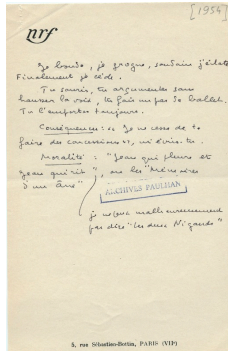 [1954]
nrf
Je boude, je grogne, soudain j'éclate
Finalement je cède.
Tu souris, tu argumentes sans
hausser la voix, tu fais un pas de ballet.
Tu l'emportes toujours.
Conséquences : "Je ne cesse de te
faire des concessions", m'écris-tu.
Moralité : "Jean qui pleure et
Jean qui rit", ou les "Mémoires
d'un âne"
ARCHIVES PAULHAN
je ne peux malheureusement
pas dire "Les deux Nigauds"
5, rue Sébastien-Bottin, PARIS (VIIe)